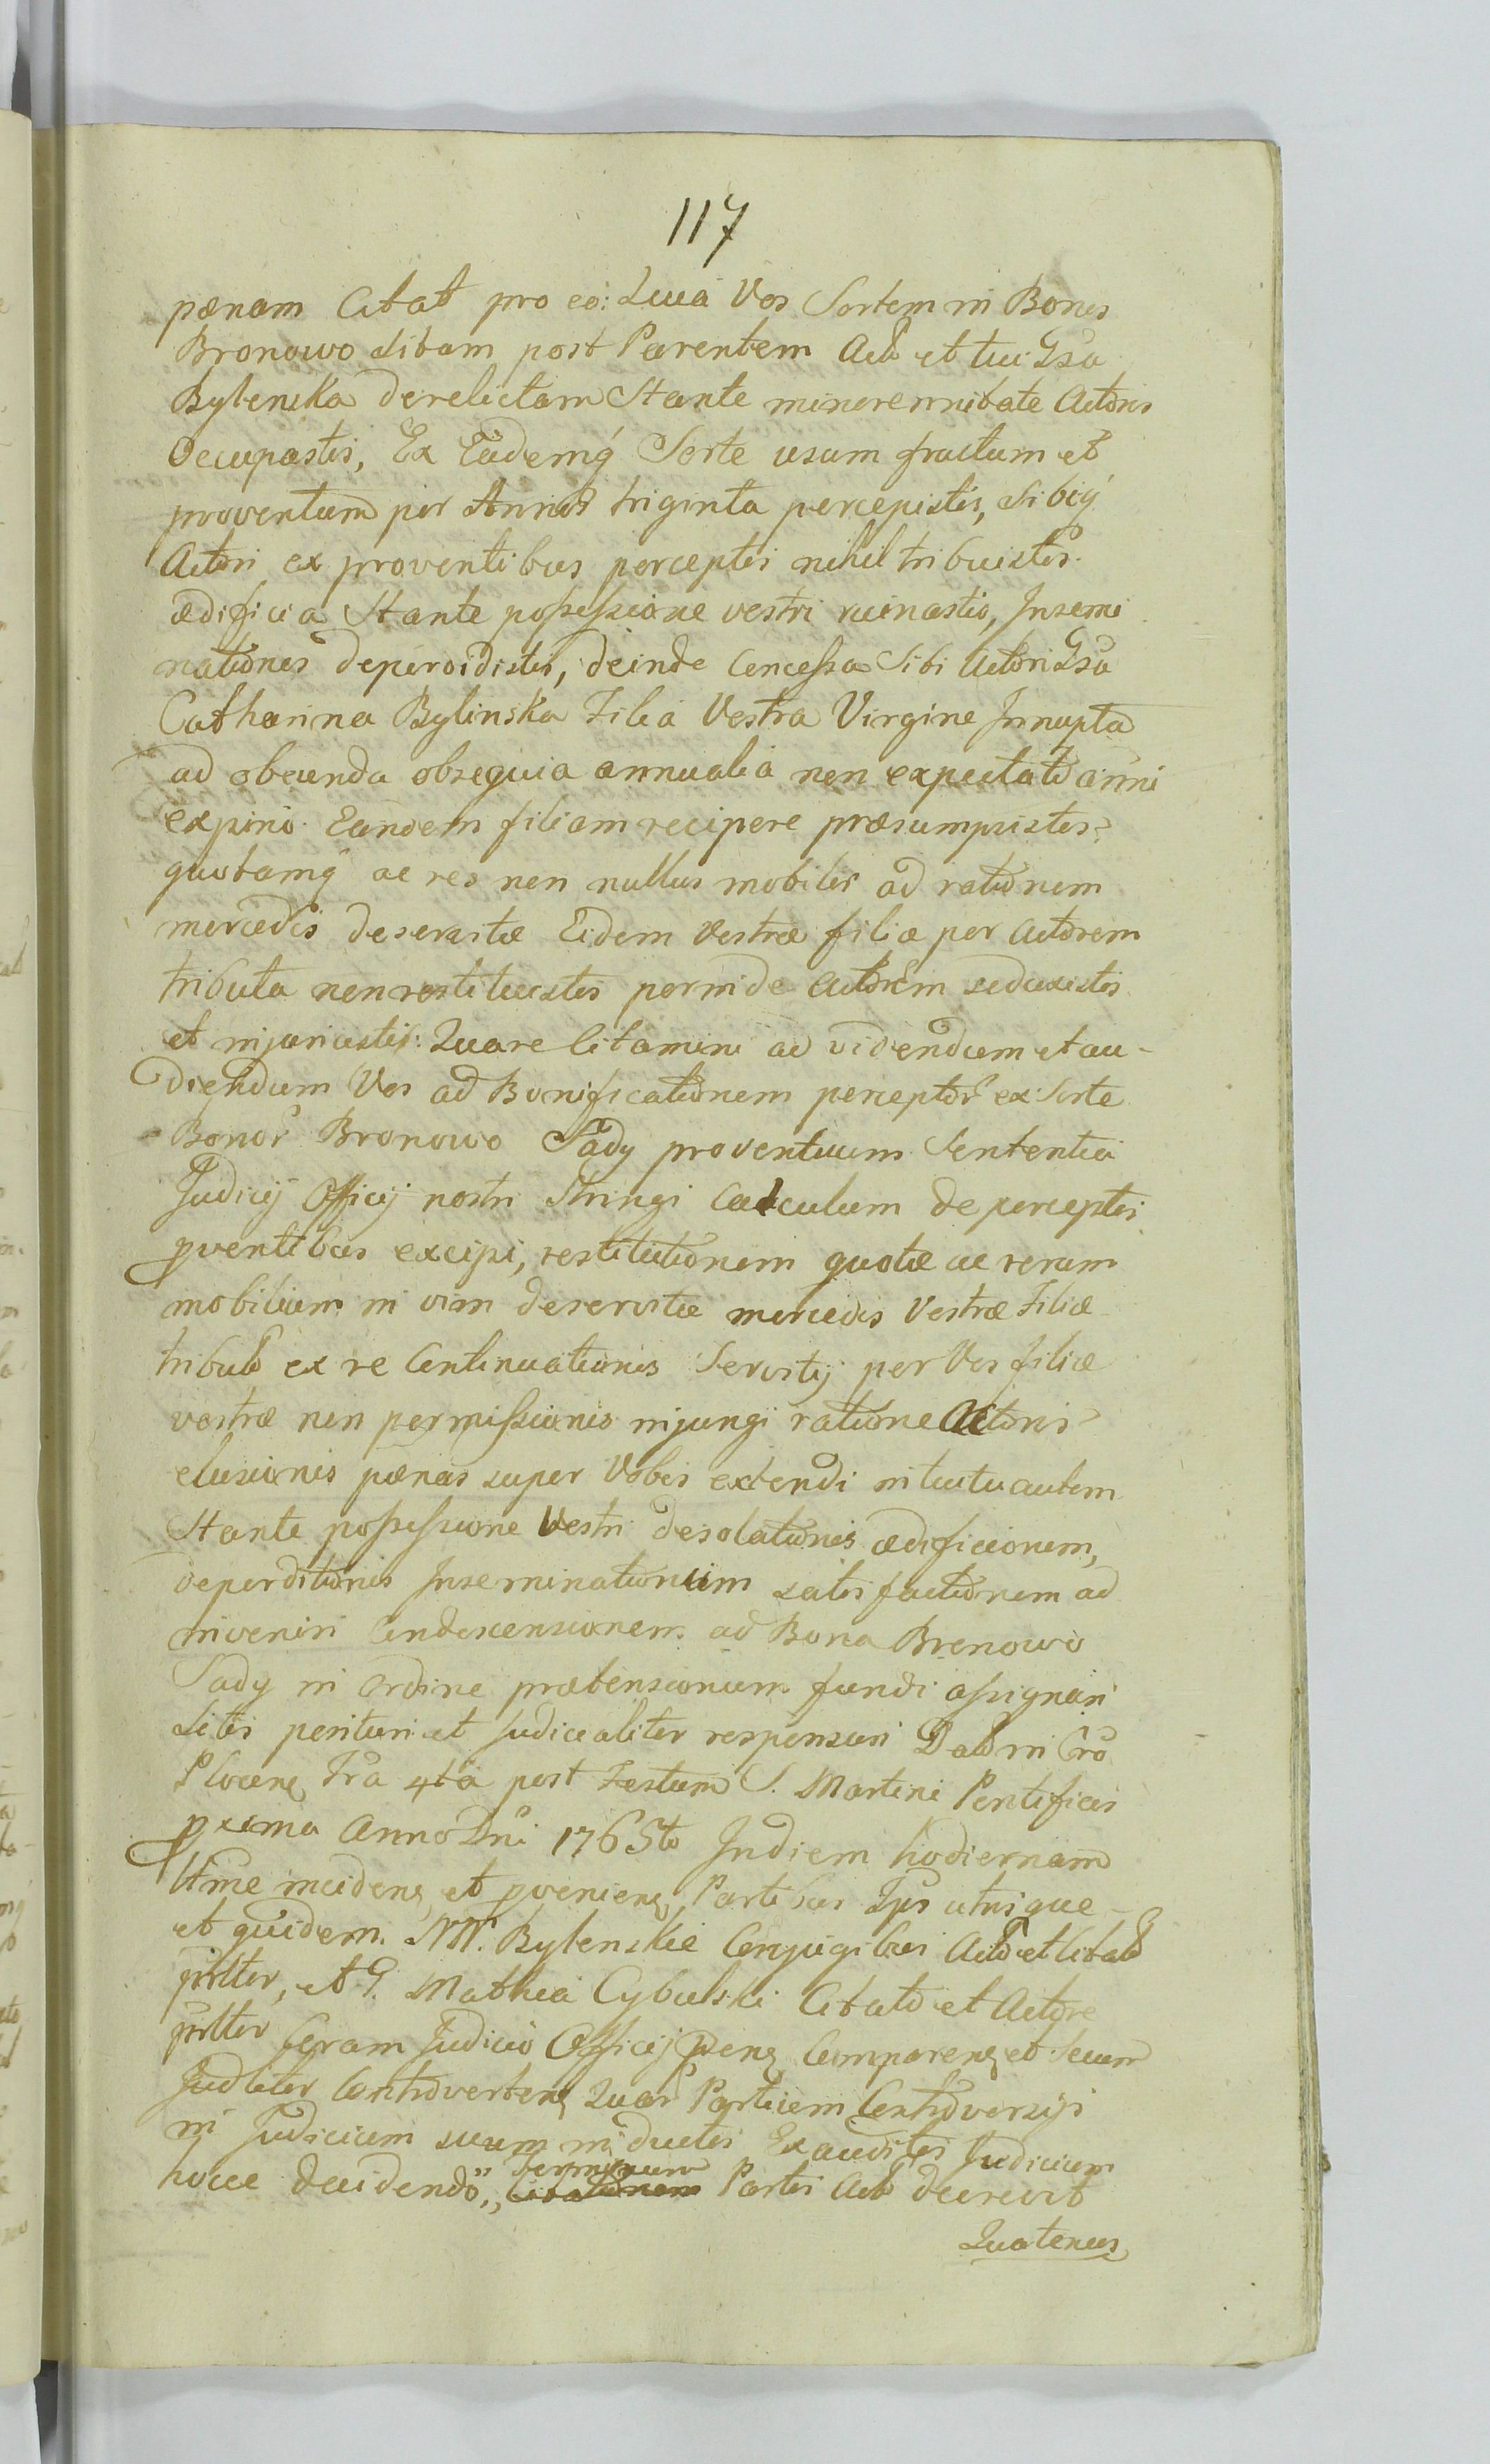 117
pænam Citat pro eo: Quia Vos Sortem in Bonis
Bronowo Sitam post Parentem Act et tui Gsa
Bylenska derelictam Stante minorennitate Actoris
Occupastis, Ex Eademq́ Sorte usum fructum et
proventum per Annos triginta percepistis, Sibiq́
Actori ex proventibus perceptis nihil tribuistis.
ædificia Stante possessione vestri ruinastis, Insemi
nationes deperdidistis, deinde Concessa Sibi Actori Gsa
Catharina Bylinska Filia Vestra Virgine Innupta
ad obeunda obsequia annualia non expectato anni
expirio Eandem filiam recipere præsumpsistis
quotamq́ ac res non nullas mobiles ad rationem
mercedis deservitæ Eidem Vestræ filiæ per Actorem
tributa non restituistis perinde Actorem seduxistis
et injuriastis: Quare Citamini ad videndum et au-
diendum Vos ad Bonificationem perceptor ex Sorte
Bonor Bronowo Sady proventuum Sententia
Judicij Officij nostri Stringi Calculum de perceptis
pventibus excipi, restitutionem quotæ ac rerum
mobilium in vim deservitæ mercedis Vestræ Filiæ
tribut ex re Continuationis Servitij per Vos filiæ
vestræ non permissionis injungi ratione Actoris
elusionis pænas super Vobis extendi intuitu autem
Stante possessione Vestri desolationis ædificiorum,
deperditionis Inseminationum satisfactionem ad
inveniri Condescensionem ad Bona Bronowo
Sady in Ordine prætensionum fundi assignari
Sitis parituri et Judicialiter responsuri Dat in Cro
Plocen Fra 4ta post Festum S. Martini Pontificis
pxima Anno Dni 1765to In diem hodiernam
ltime inciden et pvenien, Partibus Ips utrisque
et quidem. NN. Bylenskie Conjugibus Act et Citat
priltter, et G. Mathia Cybulski Citato et Actore
priltter Coram Judicio Officij pen Comparen et Secum
Judliter Controverten Quar Partium Controversijs
in Judicium suum inductis Exauditis Judicium
hocce decidendo", Terminum Citationem Partis Act decrevit
Quatenus